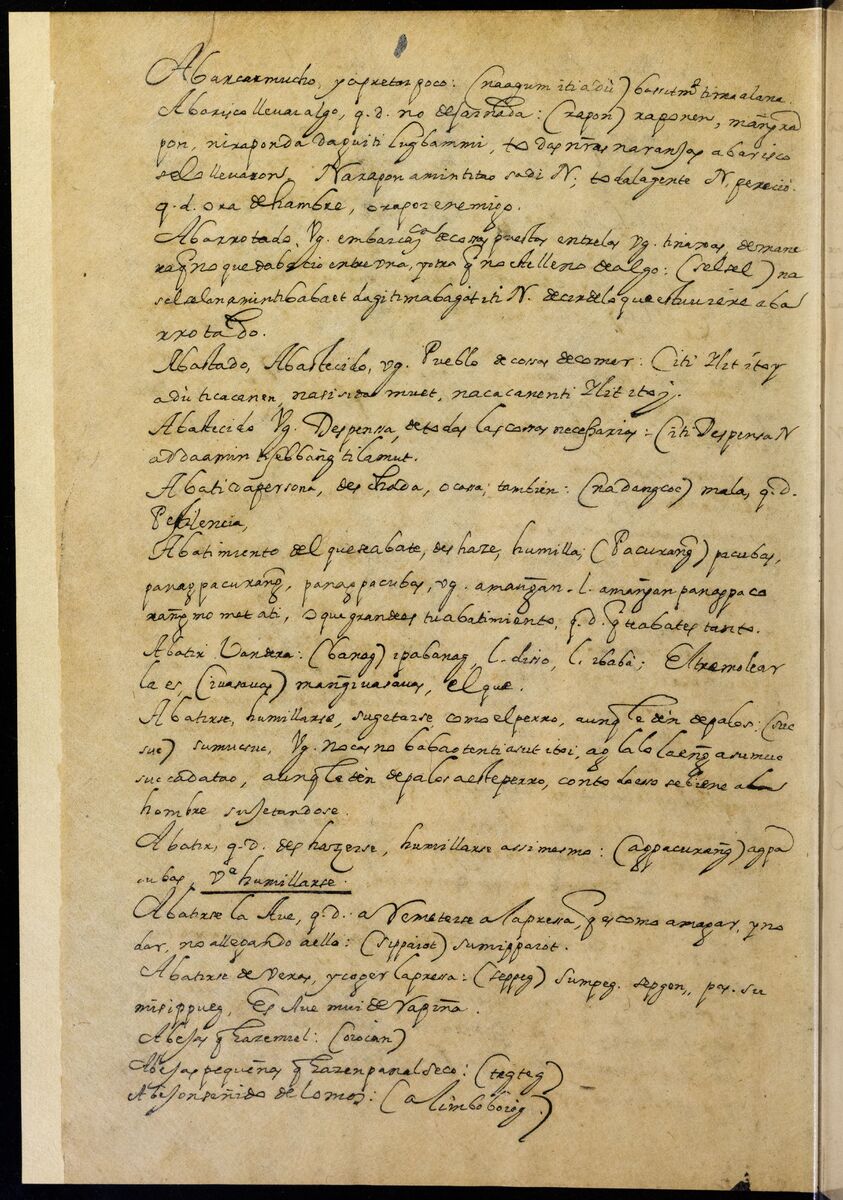 Abarcar mucho, y apretar poco: (naagum iti adù) bassit tirraalana.
Abarisco llevar algo, q. d. no dejar nada: (rapon) raponen, mang̃ra
pon, niraponda daguiti lugbammi, todas nr̃as naranjas abarisco
se lo llevaron, Narapon amintitao sadi N; toda la gente N. pereciò.
q. d. ora de hambre, o ra por enemigo.
Abarrotado, Vg. embarcaс̃ de cosas puestas entre las Vg. tinaxas, de mane
ra q̃ no quedabacio entre vna, y otra q̃ no esté lleno de algo: (selsel) na
selselan amin ti babaet dagiti mabagat iti N. decir de lo que estuviere aba
rrotado.
Abastado, Abastecido, vg. Pueblo de cossas de comer: Citi Ylit itoy
adù ti cacanen, nasisidamuet, nacacanenti Ylit itoy.
Abastecido Vg. Despensa, de todas las cossas necessarias: Citi Despensa N
addaamin ti tilamut.
Abatida persona, deshechada, o cassa; tambien: (nadangcoc) mala, q. d.
Pestilencia,
Abatimiento del que se abate, des haze, humilla; (Pacurang̃) pacubas,
panagpacurang̃, panagpacubas, vg. amang̃an. l. amang̃an panagpaco
rang̃mo met ati, o que grande es tu abatimiento, q. d. q̃ te abates tanto.
Abatir Vandera: (banag) ipabanag, l. disso, l. ibabà; El tremolear
la es, (iuasauas) mang̃iuasauas, el que.
Abatirse, humillarse, sugetarse como el perro, aunq̃ le dèn de palos: (suc
suc) sumucsuc, Vg. nocasno bàbaotenti asut itoi, ag lalo laeng̃ asumuc
suc cadatao, aunq̃ le dèn de palos a este perro, con todo esso se biene al
hombre sujetandose.
Abatir, q. d. des hazerse, humillarse assimesmo: (agpacurang̃) agpa
cubas, Vᵃ humillarse.
Abatirse la Ave, q. d. a Vemeterse a la pressa, q̃ es como amagar, y no
dar, no allegando a ello: (sipparot) sumipparot.
Abatirse de veras, y coger la pressa: (seppeg) sumpeg. sepgen, pas. su
misippueg, Es Ave mui de rapiña.
Abejas q̃ hazen miel: (oiocan)
Abejas pequeñas q̃ hazen panal seco: (tegteg)
Abejon señido de lomos: (alimbobòiog.)